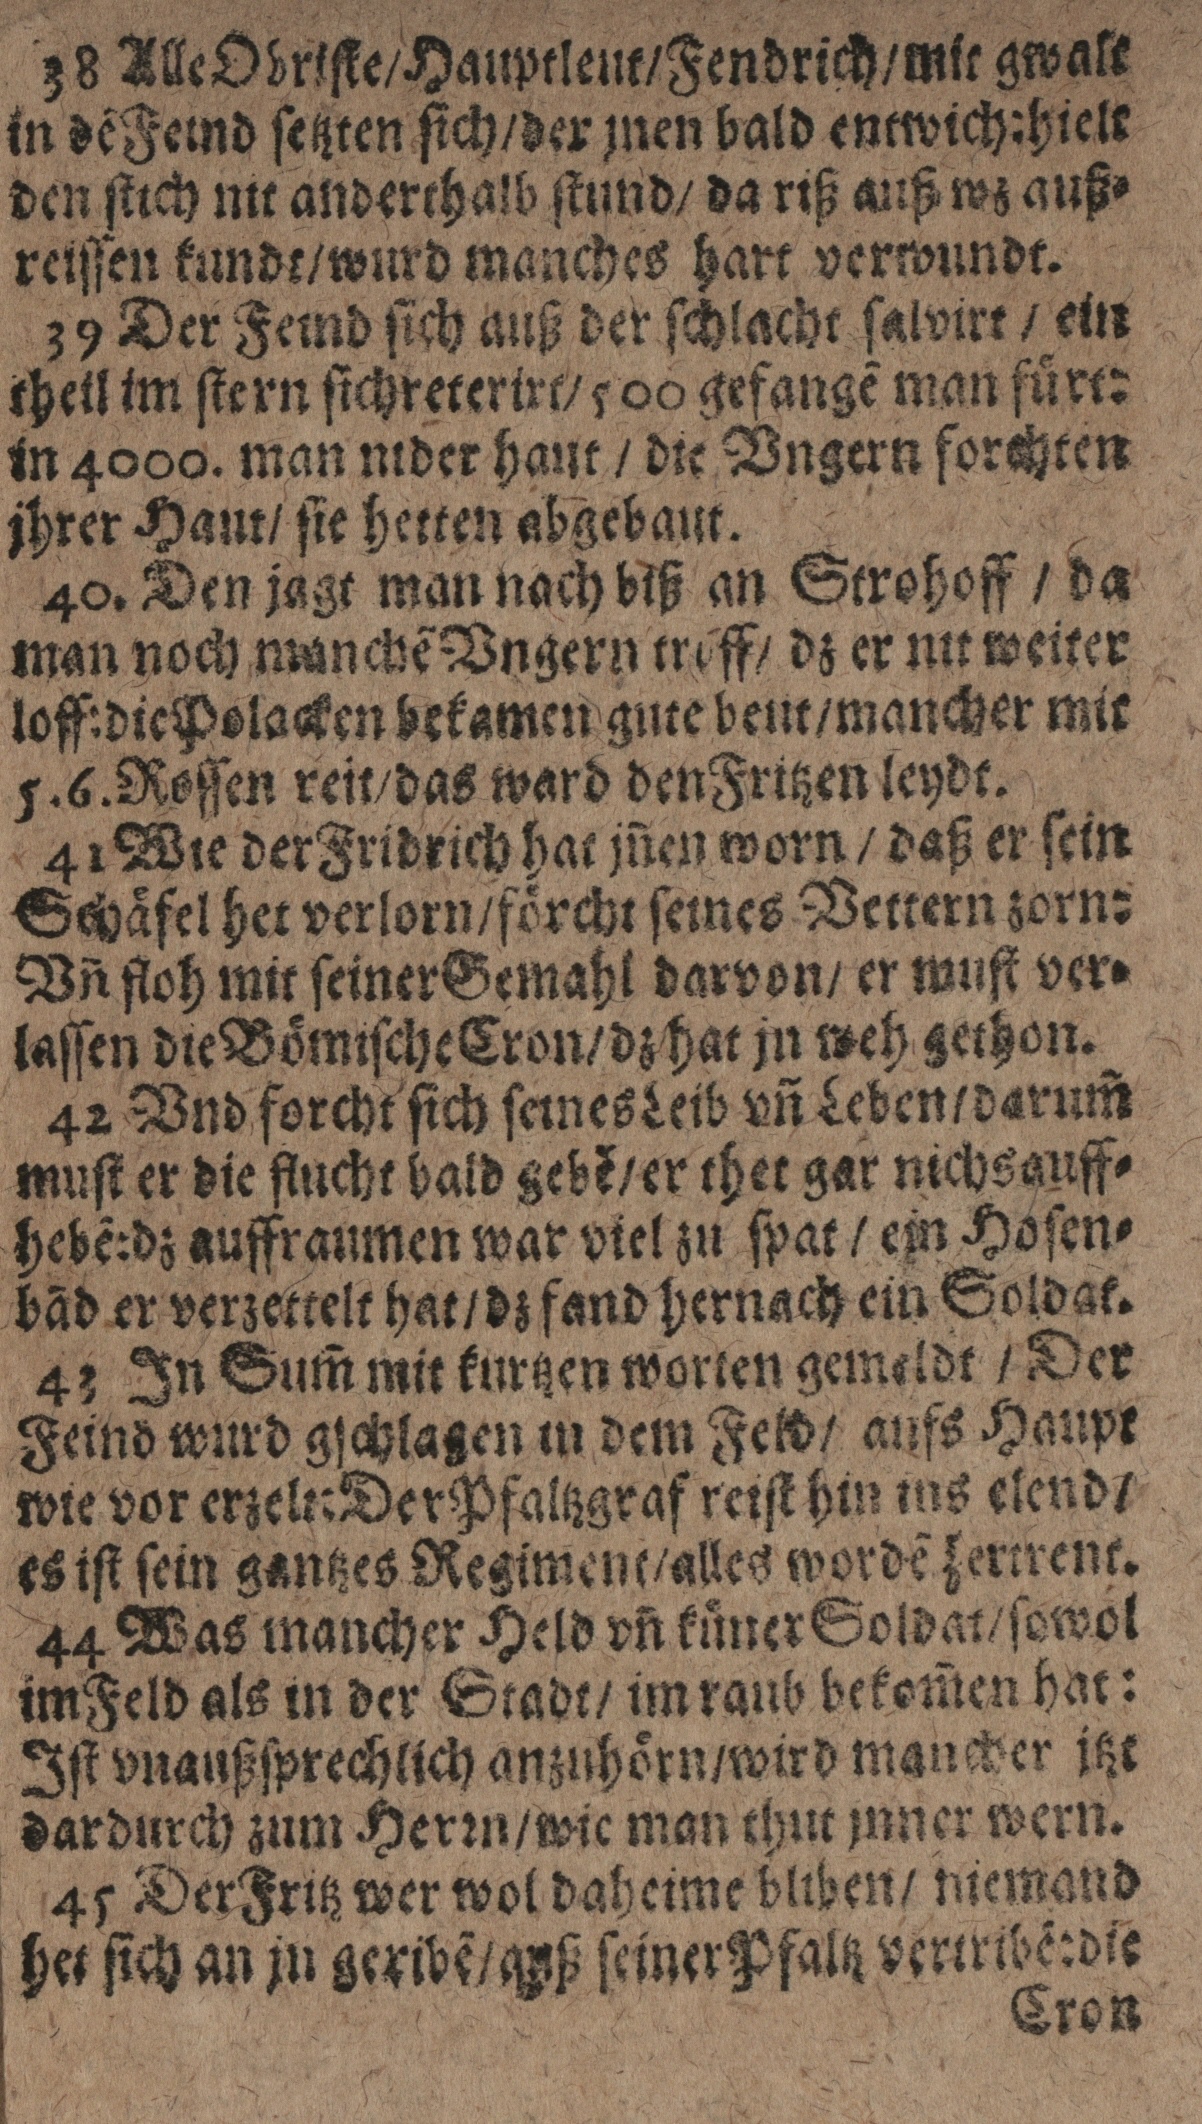 38 Alle Obriste/Hauptleut/Fendrich/mit gwalt
in dẽ Feind setzten sich/der jnen bald entwich:hielt
den stich nit anderthalb stund/ da riß auß wz auß-
reissen kundt/wurd manches hart verwundt.
39 Der Feind sich auß der schlacht salvirt / ein
theil im stern sich reterirt/500 gefangẽ man fůrt:
in 4000. man nider haut / die Vngern forchten
jhrer Haut/ sie hetten abgebaut.
40. Den jagt man nach biß an Strohoff / da
man noch manchẽ Vngern troff/ dz er nit weiter
loff:die Polacken bekamen gute beut/mancher mit
5.6. Rossen reit/das ward den Fritzen leydt.
41 Wie der Fridrich hat jñen worn / daß er sein
Schåfel het verlorn/förcht seines Vettern zorn:
Vñ floh mit seiner Gemahl darvon/ er must ver-
lassen die Bömische Cron/dz hat jn weh gethon.
42 Vnd forcht sich seines Leib vñ Leben/darum̃
must er die flucht bald gebẽ/er thet gar nichs auff-
hebẽ:dz auffraumen war viel zu spat / ein Hosen-
bãd er verzettelt hat/dz fand hernach ein Soldat.
43 In Sum̃ mit kurtzen worten gemeldt / Der
Feind wurd gschlagen in dem Feld/ aufs Haupt
wie vor erzelt:Der Pfaltzgraf reist hin ins elend/
es ist sein gantzes Regiment/alles wordẽ zertrent.
44 Was mancher Held vñ kůner Soldat/sowol
im Feld als in der Stadt/ im raub bekom̃en hat:
Ist vnaußsprechlich anzuhörn/wird mancher jtzt
dardurch zum Herrn/wie man thut jnner wern.
45 Der Fritz wer wol daheime bliben/ niemand
het sich an jn geribẽ/auß seiner Pfaltz vertribẽ:die
Cron